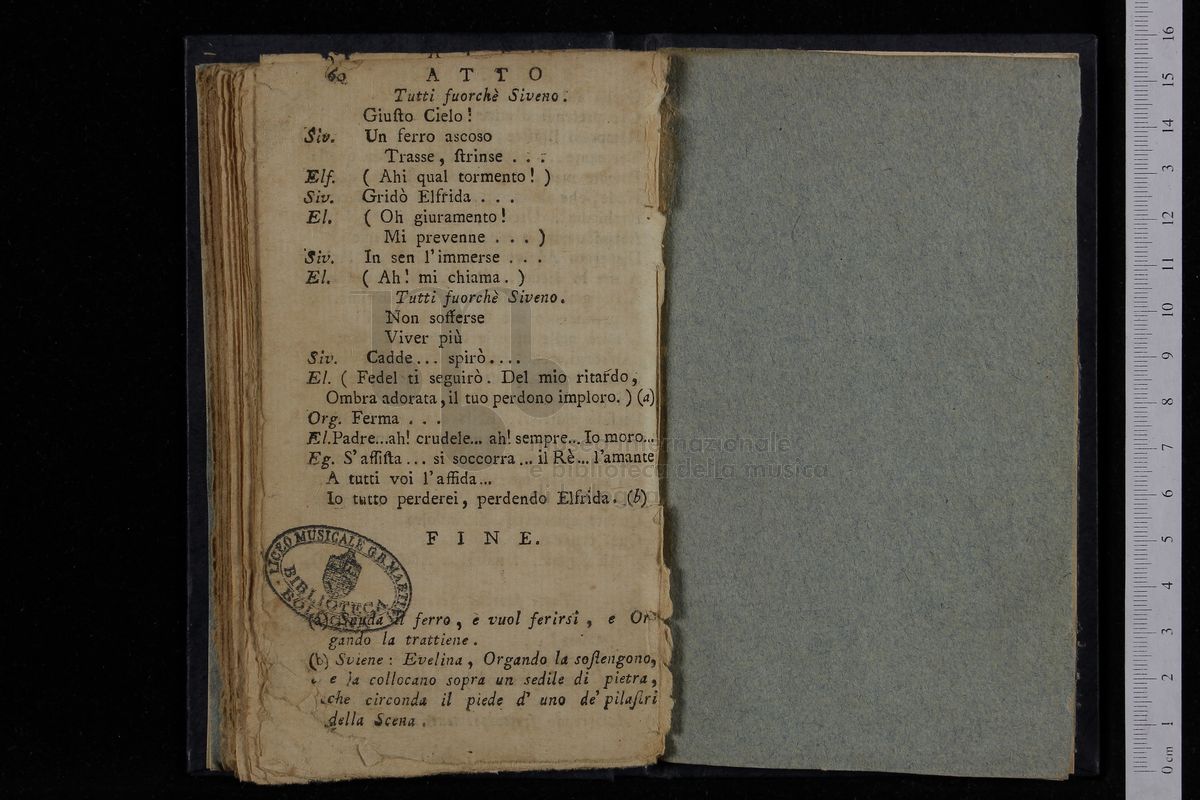 60
A T T O
Tutti fuorchè Siveno.
Giuſto Cielo!
Siv. Un ferro ascoso
Trasse, ſtrinse . . .
Elf. ( Ahi qual tormento! )
Siv. Gridò Elfrida . . .
El. ( Oh giuramento!
Mi prevenne . . . )
Siv. In sen l'immerse . . .
El. ( Ah! mi chiama. )
Tutti fuorchè Siveno.
Non sofferse
Viver più
Siv. Cadde... spirò....
El. ( Fedel ti seguirò. Del mio ritardo,
Ombra adorata, il tuo perdono imploro. ) (a)
Org. Ferma . . .
El. Padre...ah! crudele... ah! sempre... Io moro...
Eg. S'affiſta... si soccorra... il Rè... l'amante
A tutti voi l'affida...
Io tutto perderei, perdendo Elfrida. (b)
F I N E.
LICEO MUSICALE G.B. MARTINI
BIBLIOTECA
(a) Snuda il ferro, e vuol ferirsi, e Or
gando la trattiene.
(b) Sviene: Evelina, Orgando la soſtengono,
e la collocano sopra un sedile di pietra,
che circonda il piede d' uno de' pilaſtri
della Scena.
museo internazionale
e biblioteca della musica
di bologna
0 cm 1 2 3 4 5 6 7 8 9 10 11 12 13 14 15 16